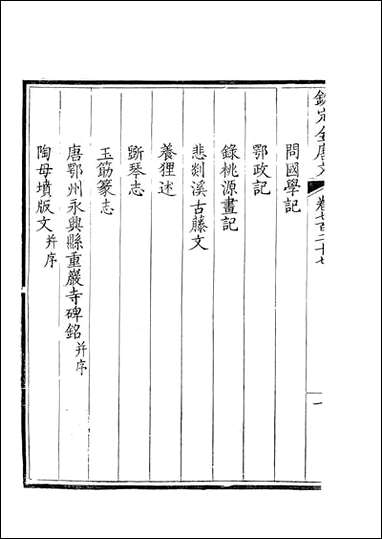 欽定全唐文
卷七百二十七
一
問國學記
鄂政記
錄桃源畫記
悲剡溪古藤文
養狸述
斲琴志
玉筯篆志
唐鄂州永興縣重巖寺碑銘并序
陶母墳版文并序